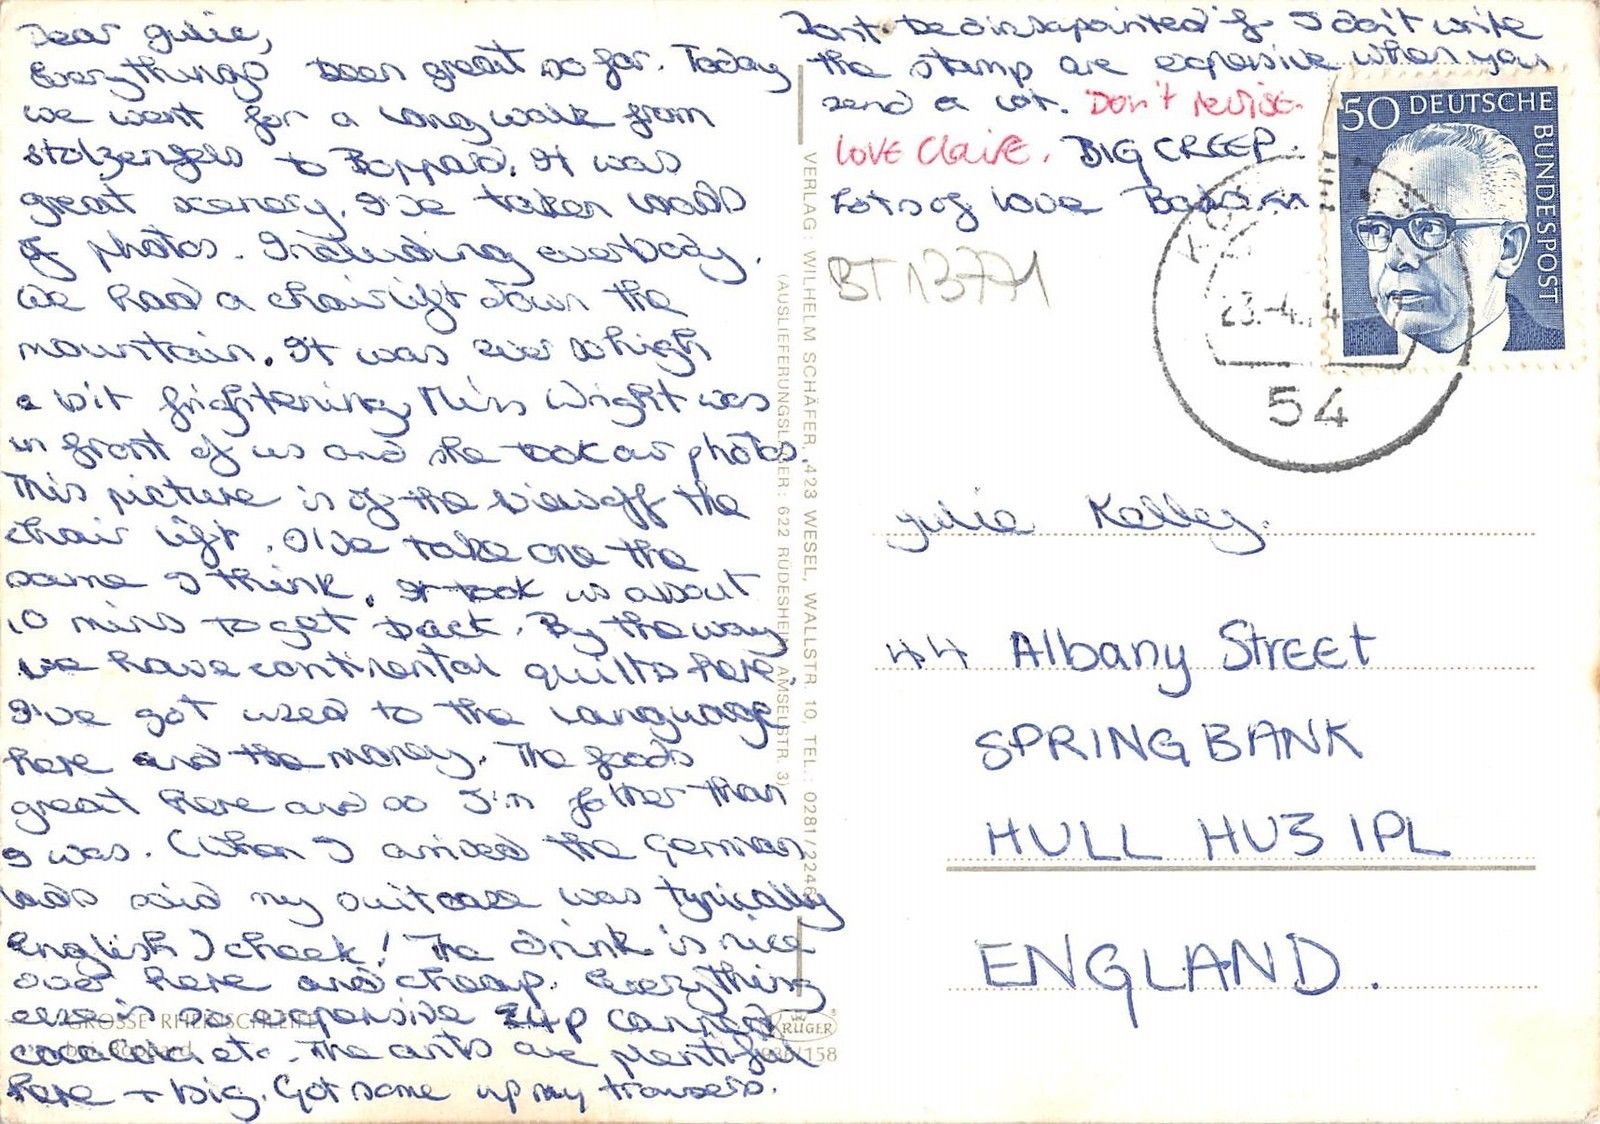 Dear Julie,
Everythings been great so far. Today
we went for a long walk from
Stolzenfels to Boppard. It was
great scenery. I've taken loads
of photos. Including everbody.
We had a chairlift down the
mountain. It was ever so high
a bit frightening, Miss Wright was
in front of us and she took our photos.
This picture is of the view off the
chair lift. I've take one the
same I think. It took us about
10 mins to get back. By the way
we have continental quilts here.
I've got used to the language
here and the money. The foods
great here and so I'm fatter than
I was. (When I arrived the German
lads said my suitcase was typically
English) cheek! The drink is nice
over here and cheap. Everything
else is so expensive 24p canned
coca cola etc. The ants are plentiful
here + big. Got some up my trousers.
Dont be dissapointed if I don't write
the stamp are expensive when you
send a lot. Don't revise.
love Claire. BIG CREEP.
Lots of love
BT 13771
50 DEUTSCHE
BUNDESPOST
23.-4.74
54
Julie Kelley.
44 Albany Street
SPRING BANK
HULL HU3 1PL
ENGLAND.
VERLAG: WILHELM SCHÄFER, 423 WESEL, WALLSTR. 10, TEL.: 0281/2246
(AUSLIEFERUNGSLAGER: 622 RÜDESHEIM, AMSELSTR. 3)
GROSSE RHEINSCHLEIFE
bei Boppard
KRÜGER
/158